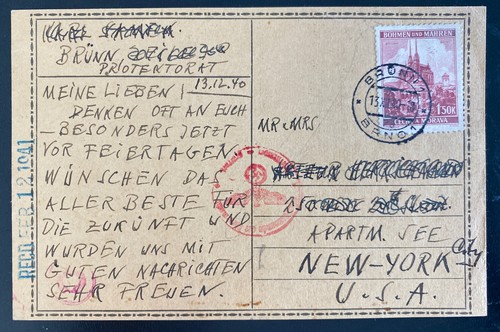 BRÜNN
PROTEKTORAT
13.12.40
MEINE LIEBEN!
DENKEN OFT AN EUCH
- BESONDERS JETZT
VOR FEIERTAGEN.
WÜNSCHEN DAS
ALLER BESTE FÜR
DIE ZUKUNFT UND
WÜRDEN UNS MIT
GUTEN NACHRICHTEN
SEHR FREUEN.
RECD FEB 12 1941
BÖHMEN UND MÄHREN
1.50K
ČECHY A MORAVA
BRÜNN 1
BRNO 1
MR & MRS
APARTM. SEE
NEW-YORK City
U.S.A.